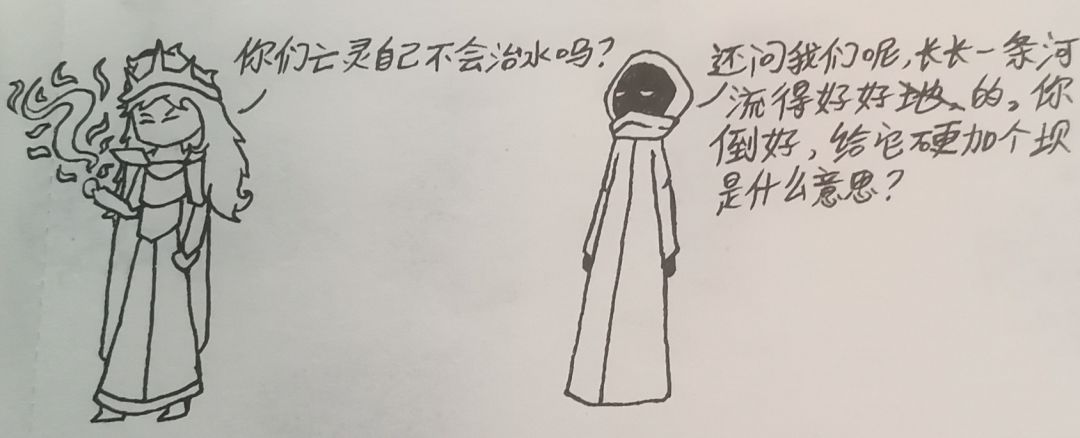 你们亡灵自己不会治水吗？
还问我们呢，长长一条河
流得好好地、的。你
倒好，给它硬加个坝
是什么意思？